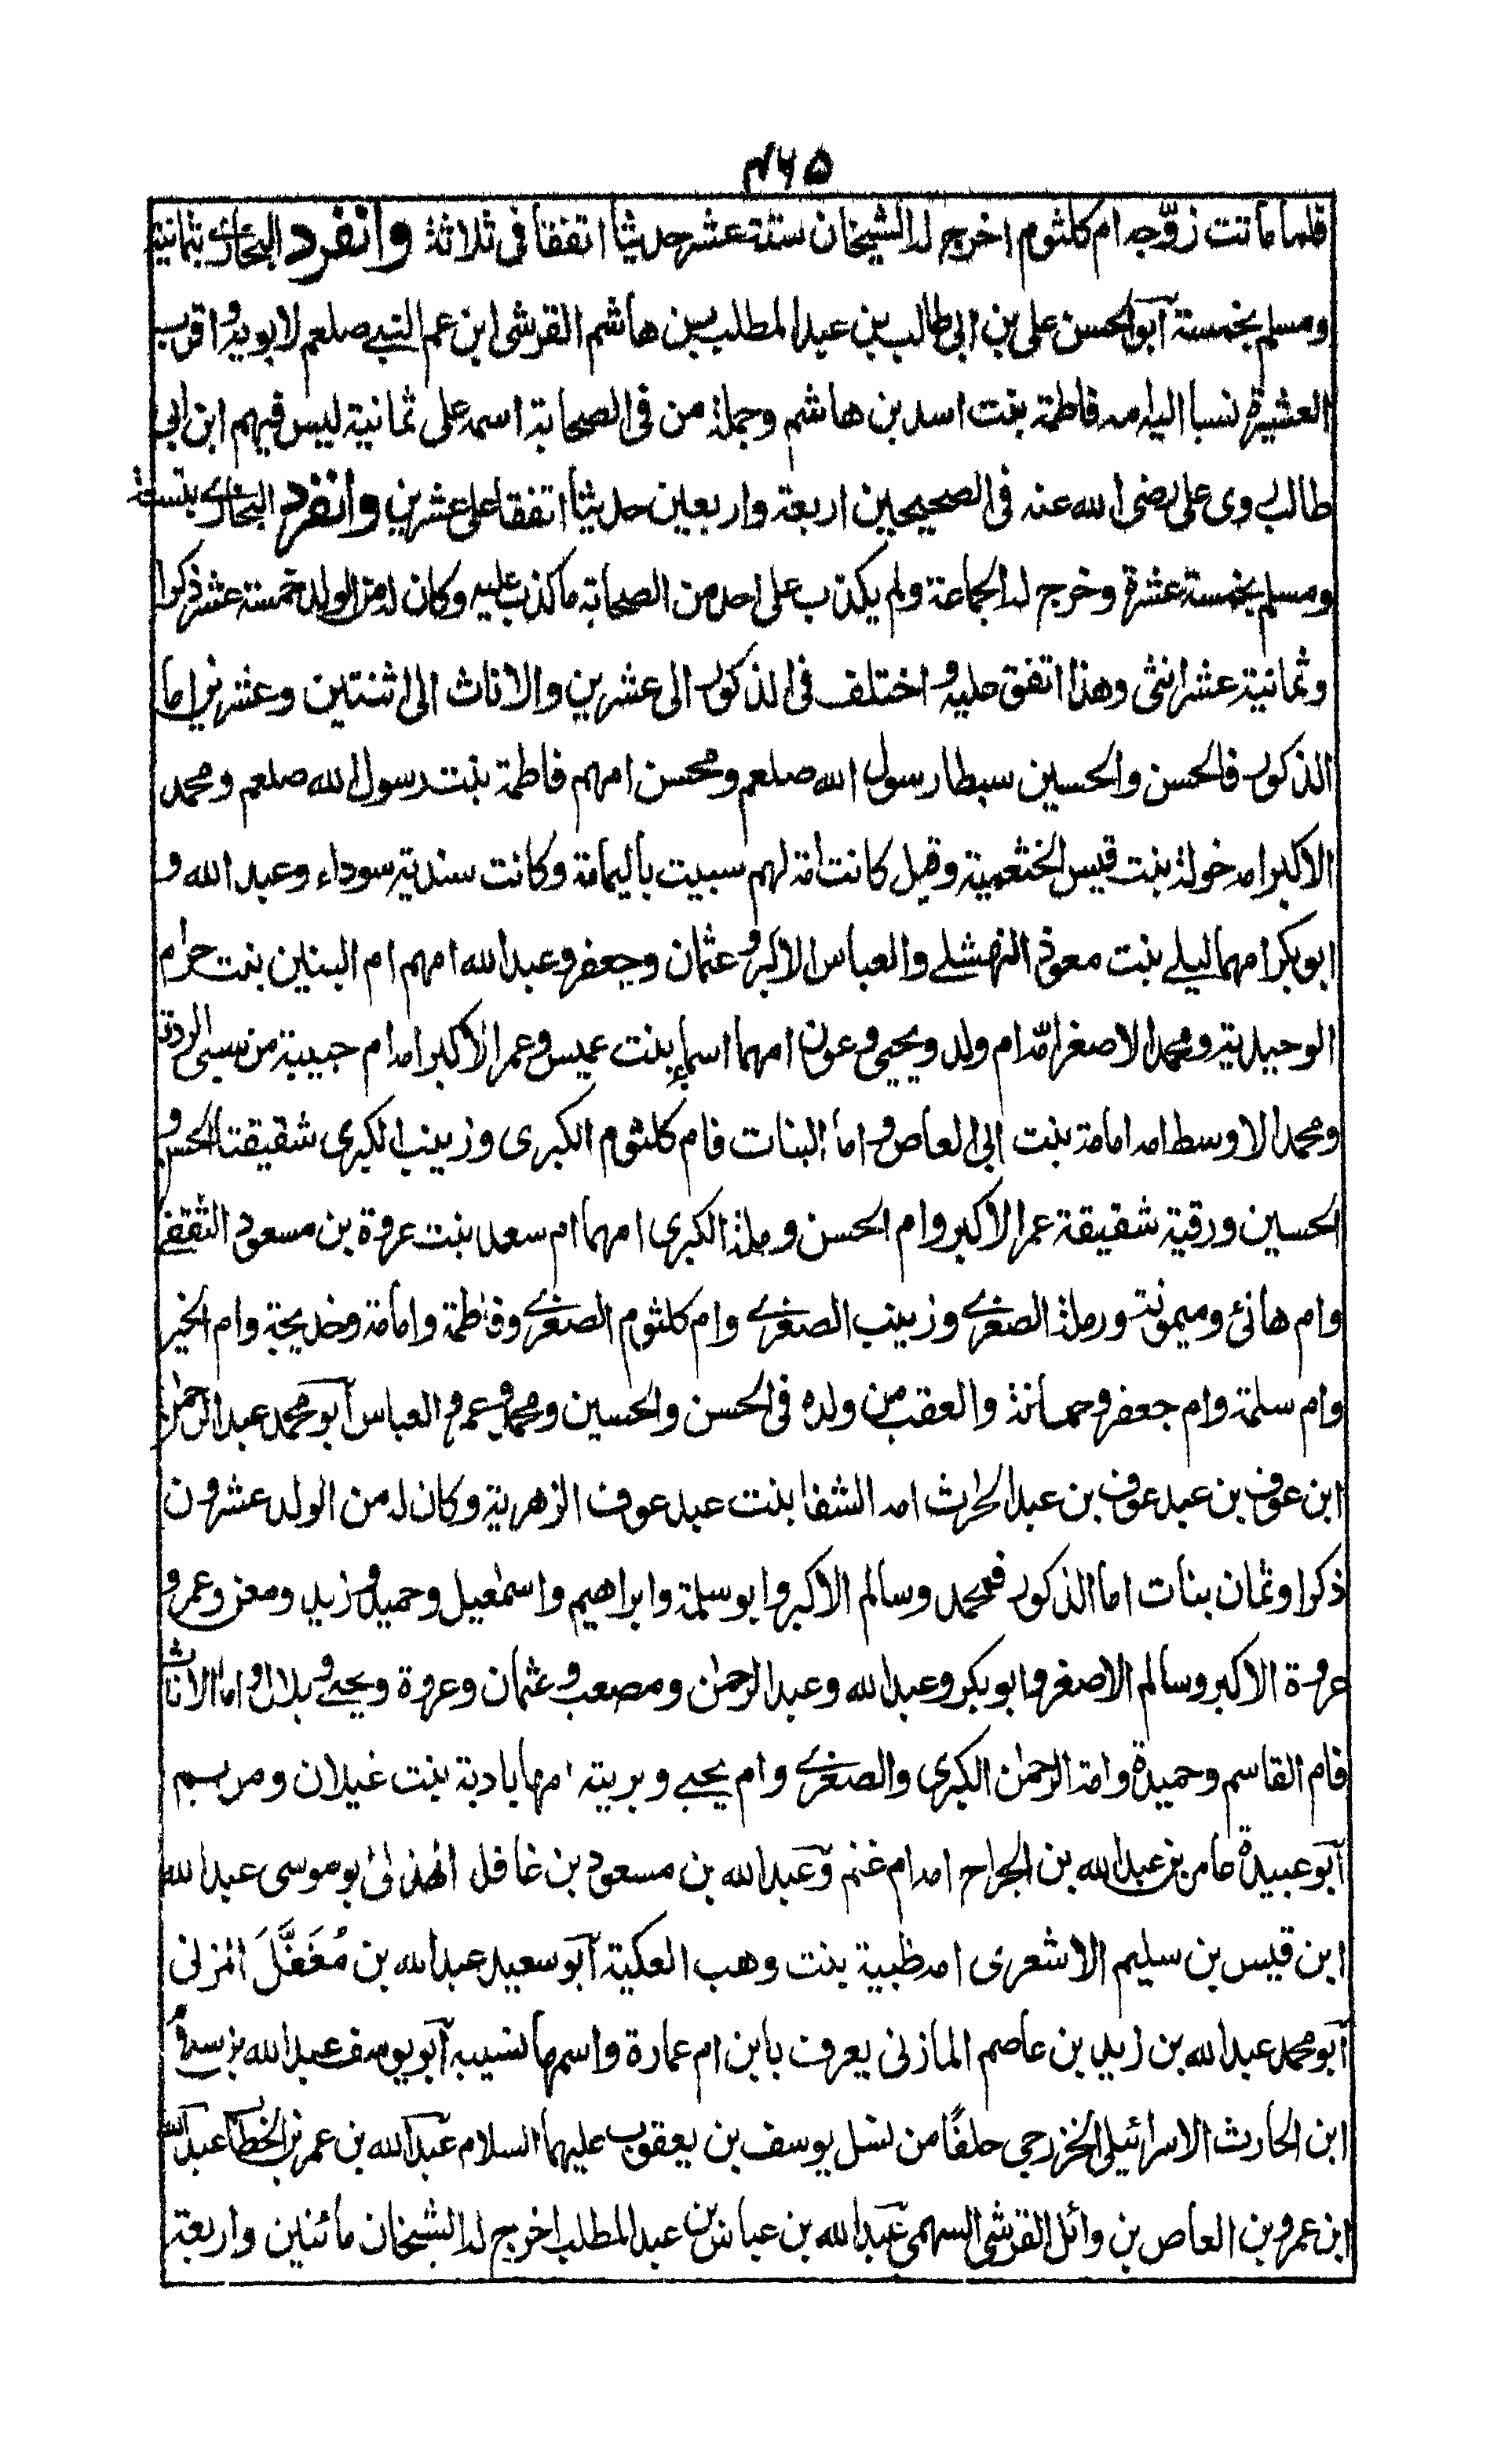 ٤٦٥
فلما ماتت زوّجه ام كلثوم اخرج له الشيخان ستة عشر حديثا اتفقا فى ثلاثة وانفرد البخارى بثمانية
ومسلم بخمسة آبو الحسن على بن ابى طالب بن عبد المطلب بن هاشم القرشى ابن عم النبى صلعم لابويه واقرب
العشرة نسبا اليه امه فاطمة بنت اسد بن هاشم وجملة من فى الصحابة اسمه على ثمانية ليس فيهم ابن ابى
طالب روى على رضى الله عنه فى الصحيحين اربعة واربعين حديثا اتفقا على عشرين وانفرد البخارى بتسعة
ومسلم بخمسة عشرة وخرج له الجماعة ولم يكذب على احد من الصحابة ما كذب عليه وكان له من الولد خمسة عشر ذكرا
وثمانية عشر انثى وهذا اتفق عليه و اختلف فى الذكور الى عشرين والاناث الى اثنتين وعشرين اما
الذكور فالحسن والحسين سبطا رسول الله صلعم ومحسن امهم فاطمة بنت رسول الله صلعم ومحمد
الاكبر امه خولة بنت قيس الخثعمية وقيل كانت امة لهم سبيت باليمامة وكانت سندية سوداء وعبد الله و
ابوبكر امهما ليلى بنت معوذ النهشلى والعباس الاكبر و عثمان وجعفر وعبد الله امهم ام البنين بنت حرام
الوحيدية ومحمد الاصغر امّه ام ولد ويحيى وعون امهما اسماء بنت عميس وعمر الاكبر امه ام حبيبة من سبى الردة
ومحمد الاوسط امه امامة بنت ابى العاص واما البنات فام كلثوم الكبرى وزينب الكبرى شقيقتا الحسن و
الحسين ورقية شقيقة عمر الاكبر وام الحسن ورملة الكبرى امهما ام سعد بنت عروة بن مسعود الثقفى
وام هانئ وميمونة ورملة الصغرى وزينب الصغرى وام كلثوم الصغرى وفاطمة وامامة وخديجة وام الخير
وام سلمة وام جعفر وجمانة والعقب من ولده فى الحسن والحسين ومحمد وعمر و العباس آبو محمد عبد الرحمٰن
ابن عوف بن عبد عوف بن عبد الحٰرث امه الشفا بنت عبد عوف الزهرية وكان له من الولد عشرون
ذكرا وثمان بنات اما الذكور فمحمد وسالم الاكبر وابوسلمة وابراهيم واسمٰعيل وحميد وزيد ومعن وعمر و
عروة الاكبر وسالم الاصغر وابوبكر وعبد الله وعبد الرحمٰن ومصعب وعثمان وعروة ويحيى وبلال واما الاناث
فام القاسم وحميدة وامة الرحمٰن الكبرى والصغرى وام يحيى وبرية امها بادية بنت غيلان ومريم
آبو عبيدة عامر بن عبد الله بن الجراح امه ام غنم وعبد الله بن مسعود بن غافل الهذلى ابو موسى عبد الله
ابن قيس بن سليم الاشعرى امه ظبية بنت وهب العكية آبو سعيد عبد الله بن مُغَفَّلَ المزنى
آبو محمد عبد الله بن زيد بن عاصم المازنى يعرف بابن ام عمارة واسمها نسيبه آبو يوسف عبد الله بن سلام
ابن الحارث الاسرائيلى الخزرجى حلفًا من نسل يوسف بن يعقوب عليهما السلام عبد الله بن عمر بن الخطاب عبد الله
ابن عمرو بن العاص بن وائل القرشى السهمى عبد الله بن عباس بن عبد المطلب اخرج له الشيخان مائتين واربعة